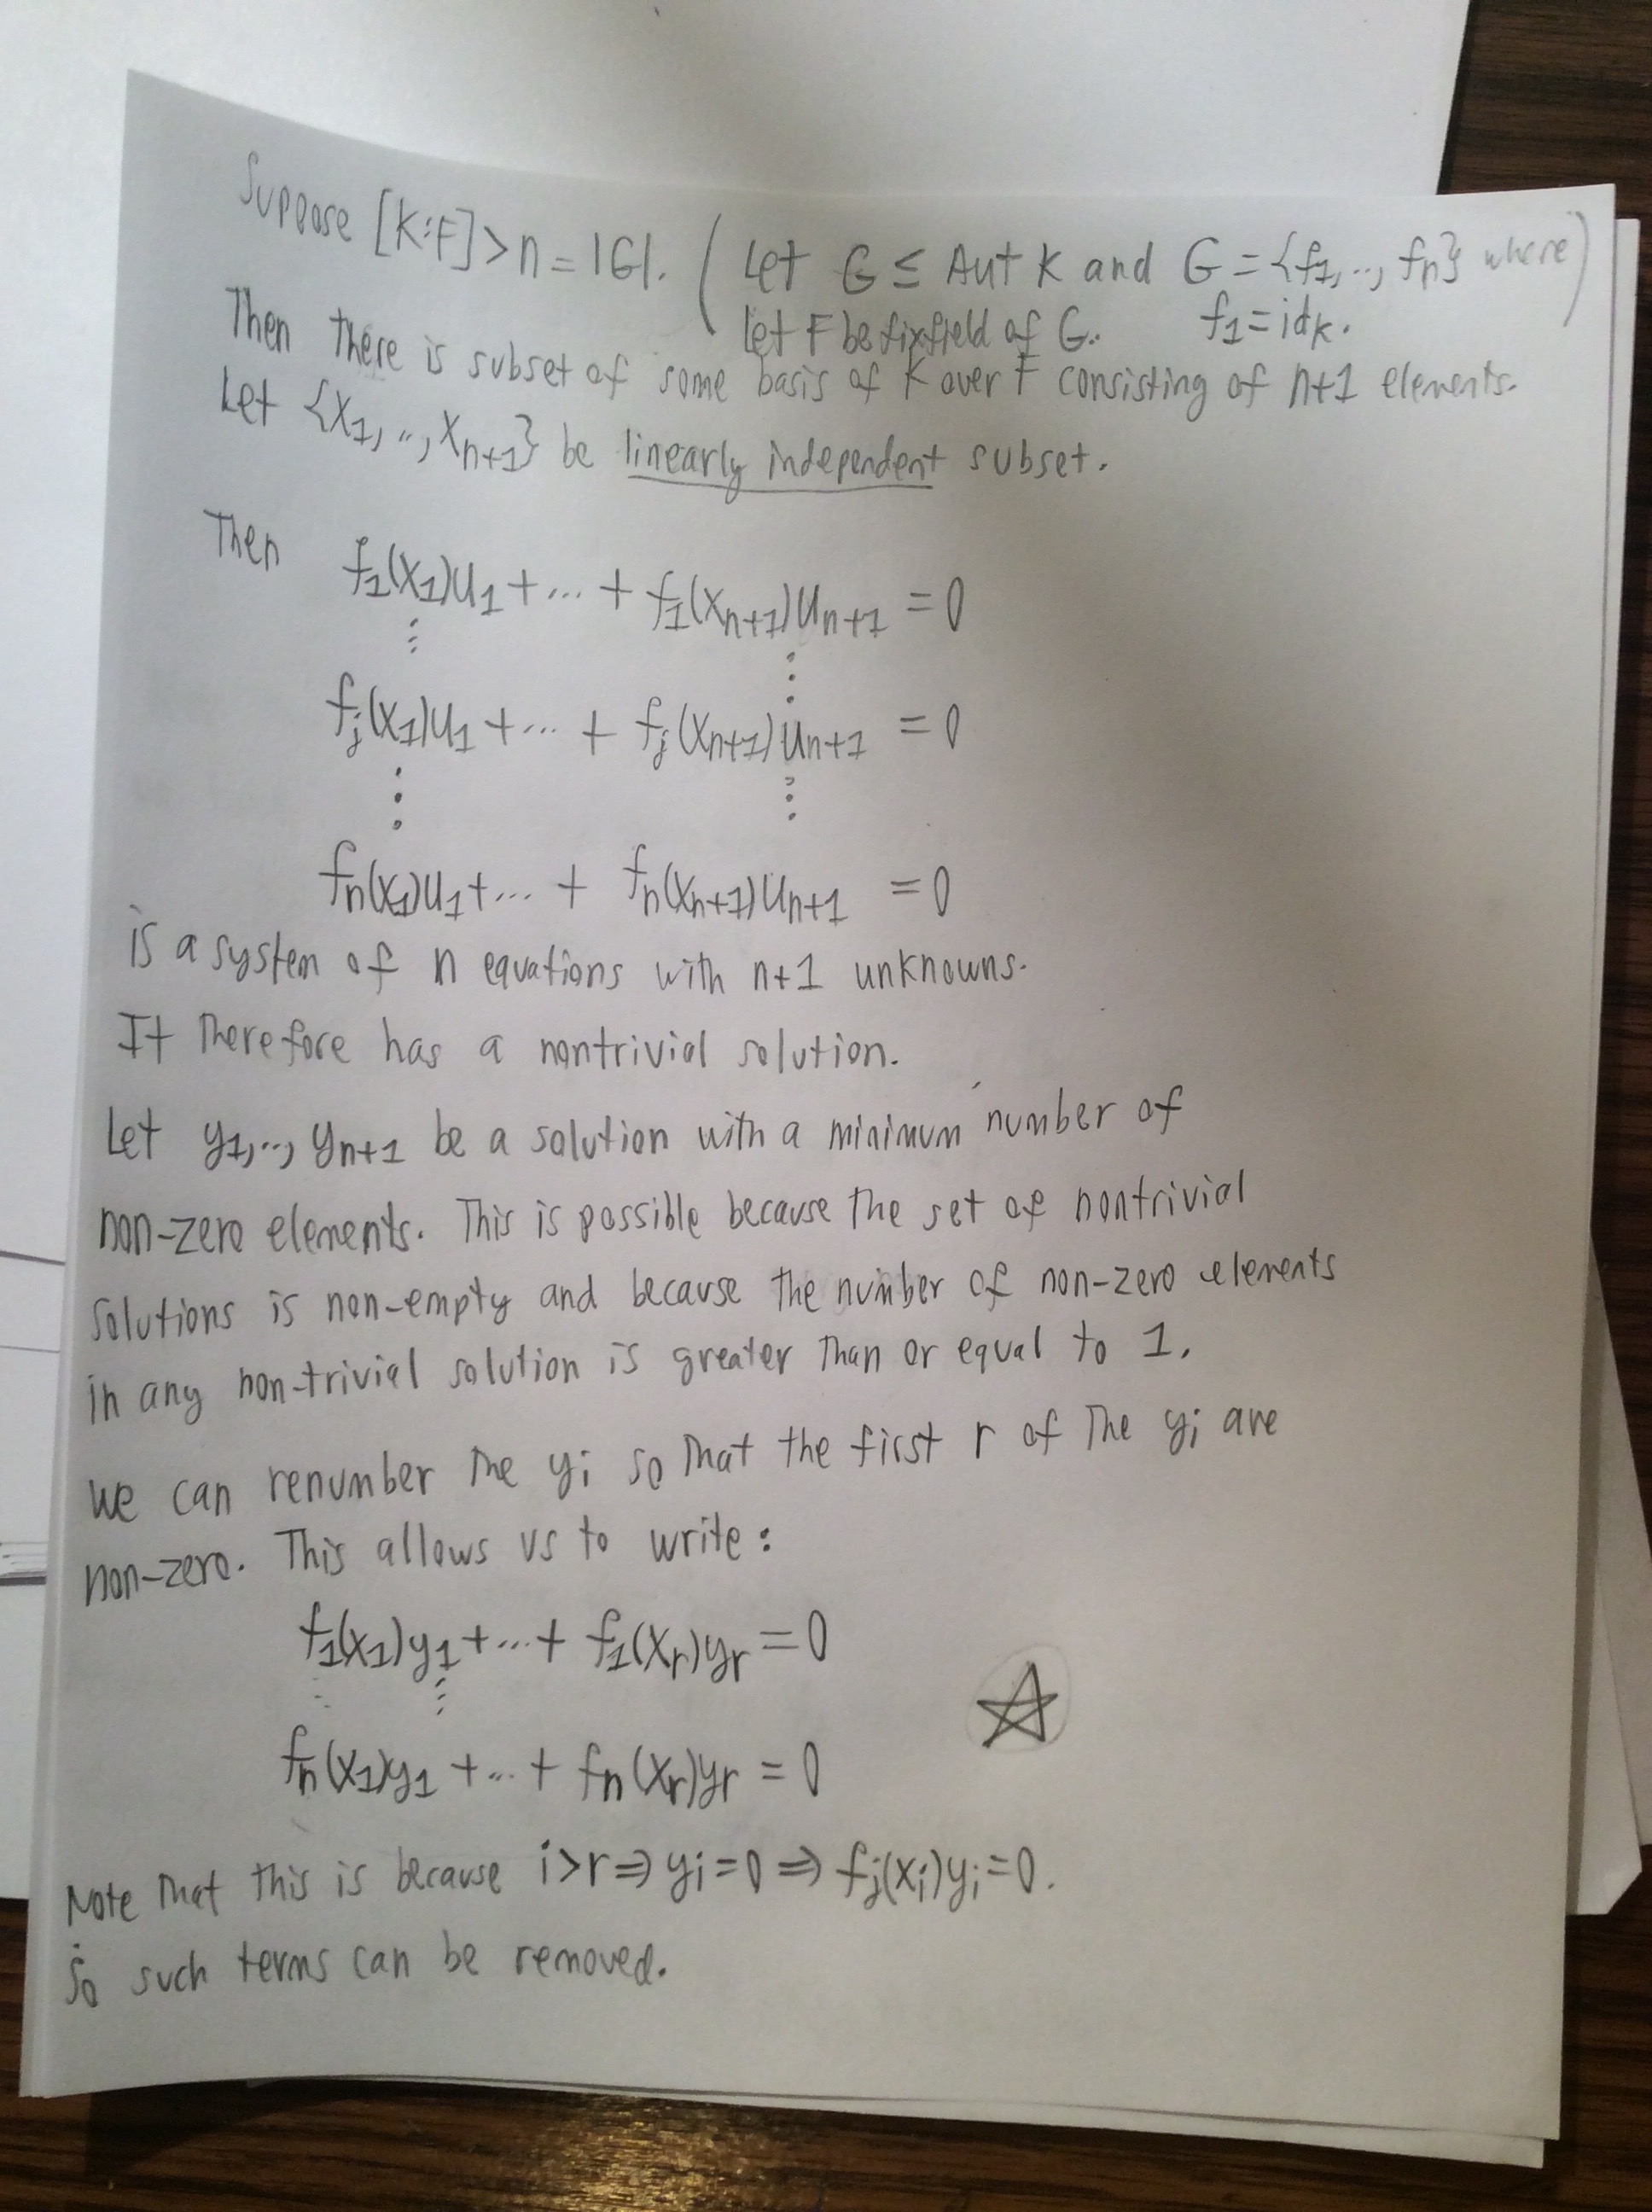 Suppose [K:F] > n = |G|. (Let G ≤ Aut K and G = {f₁, .., fₙ} where)
Let F be fixfield of G. f₁ = id_K.
Then there is subset of some basis of K over F consisting of n+1 elements.
Let {x₁, .., xₙ₊₁} be linearly independent subset.
Then f₁(x₁)u₁ + ... + f₁(xₙ₊₁)uₙ₊₁ = 0
⋮ ⋮
fⱼ(x₁)u₁ + ... + fⱼ(xₙ₊₁)uₙ₊₁ = 0
⋮ ⋮
fₙ(x₁)u₁ + ... + fₙ(xₙ₊₁)uₙ₊₁ = 0
is a system of n equations with n+1 unknowns.
It therefore has a nontrivial solution.
Let y₁, .., yₙ₊₁ be a solution with a minimum number of
non-zero elements. This is possible because the set of nontrivial
solutions is non-empty and because the number of non-zero elements
in any non-trivial solution is greater than or equal to 1.
We can renumber the yᵢ so that the first r of the yᵢ are
non-zero. This allows us to write:
f₁(x₁)y₁ + ... + f₁(xᵣ)yᵣ = 0
⋮ ☆
fₙ(x₁)y₁ + ... + fₙ(xᵣ)yᵣ = 0
Note that this is because i > r ⇒ yᵢ = 0 ⇒ fⱼ(xᵢ)yᵢ = 0.
So such terms can be removed.